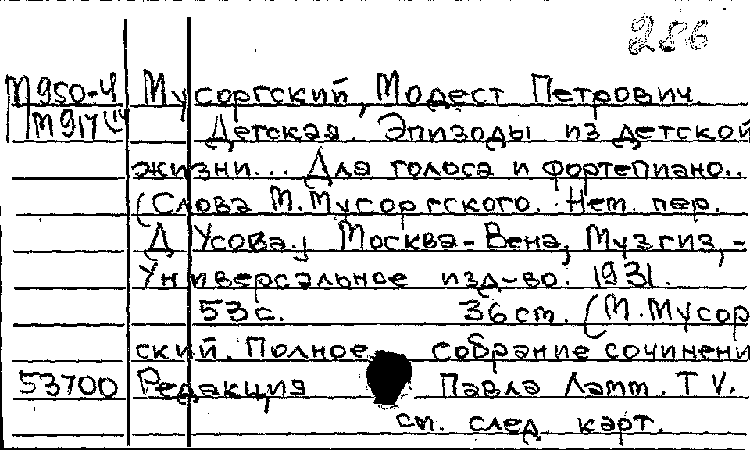 286
М950-4 Мусоргский, Модест Петрович.
М917 Детская. Эпизоды из детской
жизни... Для голоса и фортепиано..
(Слова М. Мусоргского. Нем. пер.
Д Усова.; Москва-Вена, Музгиз,-
Универсальное изд-во. 1931.
53с. 36 ст. (М. Мусорг
ский. Полное собрание сочинени
53700 Редакция Павла Ламм. Т V.
см. след. карт.